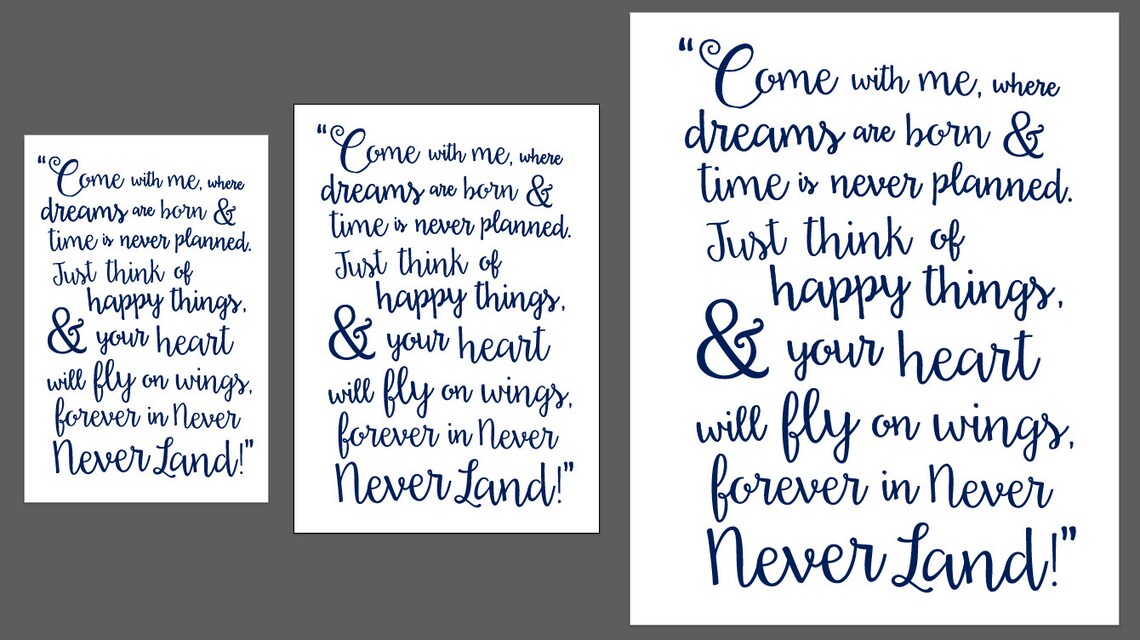 “Come with me, where
dreams are born &
time is never planned.
Just think of
happy things,
& your heart
will fly on wings,
forever in Never
Never Land!”
“Come with me, where
dreams are born &
time is never planned.
Just think of
happy things,
& your heart
will fly on wings,
forever in Never
Never Land!”
“Come with me, where
dreams are born &
time is never planned.
Just think of
happy things,
& your heart
will fly on wings,
forever in Never
Never Land!”